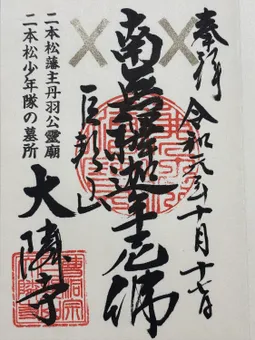 奉拝 令和元年十月十七日
南無釈迦牟尼佛
巨邦山
大隣寺
二本松藩主丹羽公霊廟
二本松少年隊の墓所
曹洞宗